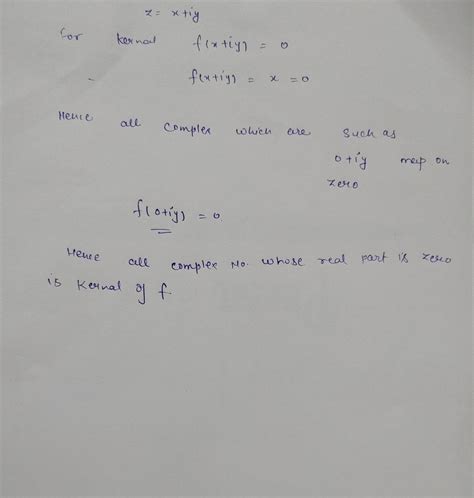 z = x+iy
for kernal f(x+iy) = 0
f(x+iy) = x = 0
Hence all complex which are such as
0+iy map on
zero
f(0+iy) = 0
Hence all complex No. whose real part is zero
is Kernal of f.